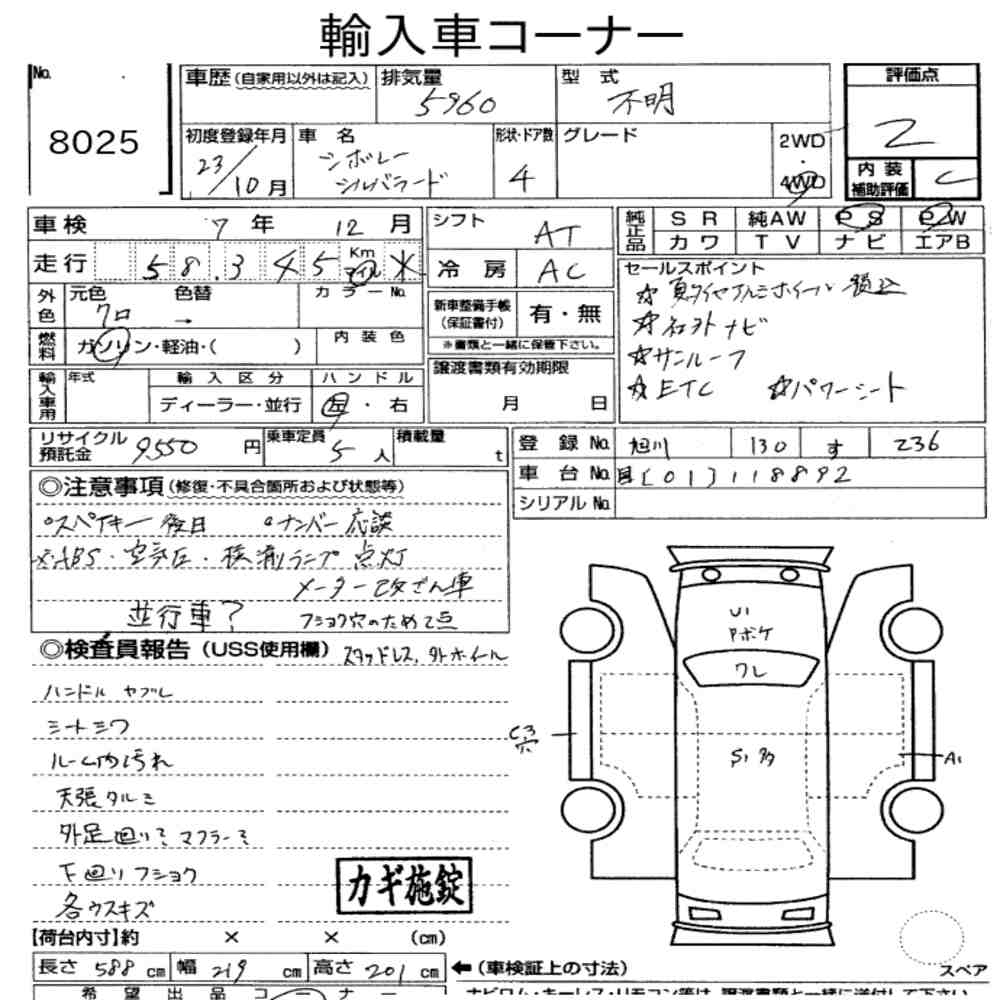 輸入車コーナー
No.
8025
車歴(自家用以外は記入)
排気量
5960
型 式
不明
評価点
2
初度登録年月
23/10月
車 名
シボレー
シルバラード
形状・ドア数
4
グレード
2WD
・
4WD
内 装
補助評価
C
車検 7 年 12 月
走行 58.345 Km マイル *
シフト
AT
冷 房 AC
純正品
S R 純AW P S P W
カ ワ T V ナ ビ エアB
外色
元色 色替 カラーNo.
クロ →
新車整備手帳
(保証書付)
有・無
※書類と一緒に保管下さい。
セールスポイント
☆夏タイヤアルミホイール積込
☆社外ナビ
☆サンルーフ
☆ETC ☆パワーシート
燃料
ガソリン・軽油・( )
内 装 色
輸入車用
年式
輸 入 区 分
ディーラー・並行
ハ ン ド ル
左 ・ 右
譲渡書類有効期限
月 日
リサイクル
預託金
9550 円
乗車定員
5 人
積載量
t
登 録 No. 旭川 130 す 236
車 台 No. 国[01]118892
シリアル No.
◎注意事項(修復・不具合箇所および状態等)
○スペアキー後日 ○ナンバー応談
※ABS・空気圧・横滑ランプ点灯
メーター改ざん車
並行車? フショク穴のため2点
◎検査員報告(USS使用欄) スタッドレス,外ホイール
ハンドル ヤブレ
シートシワ
ルーム内汚れ
天張タルミ
外足廻り マフラー
下廻りフショク
各ウスキズ
カギ施錠
U1
Pボケ
ワレ
C3
穴
S1多
A1
スペア
【荷台内寸】約 × × (cm)
長さ 588 cm 幅 219 cm 高さ 201 cm
←(車検証上の寸法)
希 望 出 品 コ ー ナ ー
ナビロム・キーレス・リモコン等は、譲渡書類と一緒に送付して下さい。